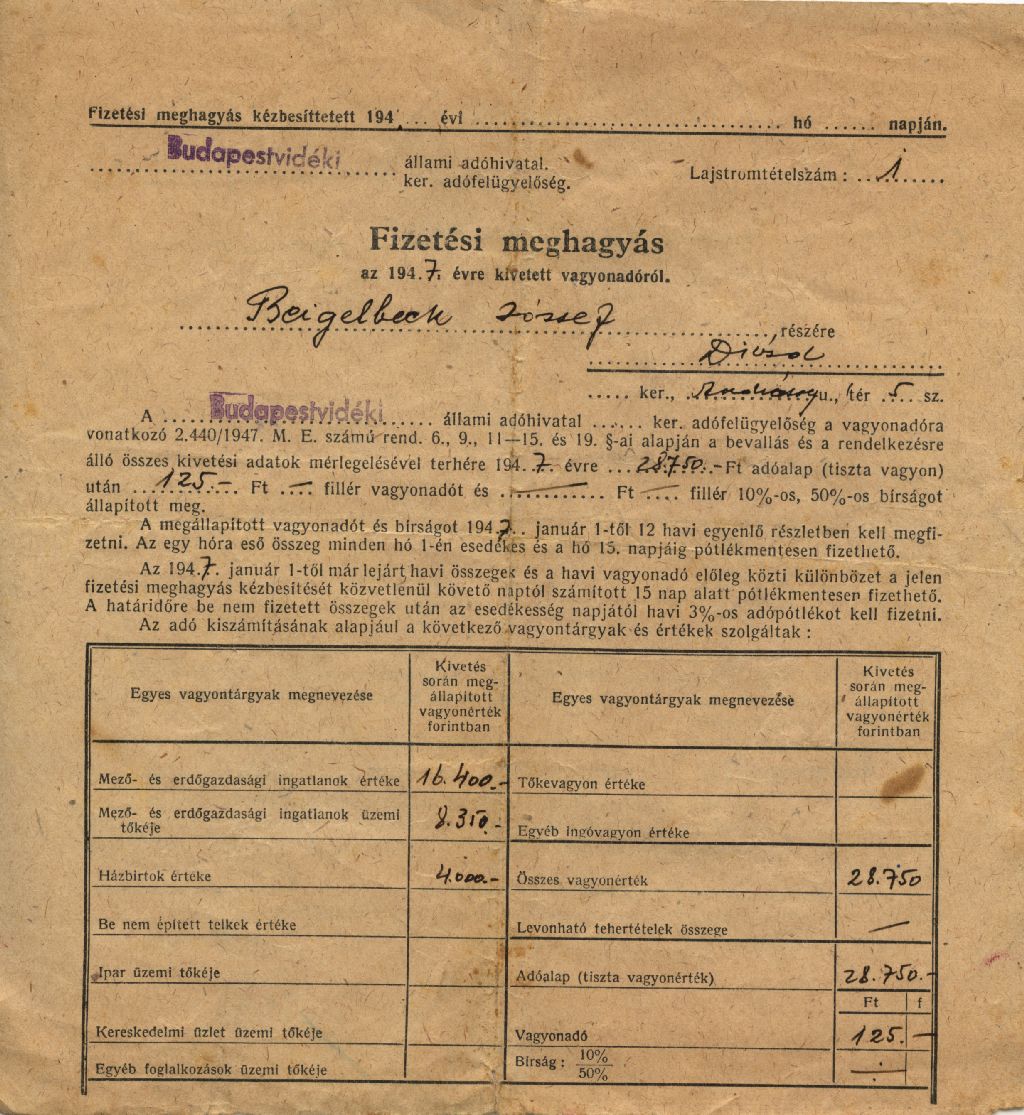 Fizetési meghagyás kézbesíttetett 194 ... évi ........ hó ...... napján.
Budapestvidéki állami adóhivatal.
ker. adófelügyelőség.
Lajstromtételszám : 1
Fizetési meghagyás
az 194.7. évre kivetett vagyonadóról.
Beigelbeck József részére
Diósd
..... ker., Andrássy u., tér 5 sz.
A Budapestvidéki állami adóhivatal ...... ker. adófelügyelőség a vagyonadóra
vonatkozó 2.440/1947. M. E. számú rend. 6., 9., 11—15. és 19. §-ai alapján a bevallás és a rendelkezésre
álló összes kivetési adatok mérlegelésével terhére 194 7. évre 28.750.- Ft adóalap (tiszta vagyon)
után 125.- Ft — fillér vagyonadót és — Ft — fillér 10%-os, 50%-os bírságot
állapított meg.
A megállapított vagyonadót és bírságot 194 7. január 1-től 12 havi egyenlő részletben kell megfi-
zetni. Az egy hóra eső összeg minden hó 1-én esedékes és a hó 15. napjáig pótlékmentesen fizethető.
Az 194 7. január 1-től már lejárt havi összegek és a havi vagyonadó előleg közti különbözet a jelen
fizetési meghagyás kézbesítését közvetlenül követő naptól számított 15 nap alatt pótlékmentesen fizethető.
A határidőre be nem fizetett összegek után az esedékesség napjától havi 3%-os adópótlékot kell fizetni.
Az adó kiszámításának alapjául a következő vagyontárgyak és értékek szolgáltak :
Egyes vagyontárgyak megnevezése
Kivetés
során meg-
állapított
vagyonérték
forintban
Egyes vagyontárgyak megnevezése
Kivetés
során meg-
állapított
vagyonérték
forintban
Mező- és erdőgazdasági ingatlanok értéke 16.400.-
Tőkevagyon értéke
Mező- és erdőgazdasági ingatlanok üzemi
tőkéje 8.350.-
Egyéb ingóvagyon értéke
Házbirtok értéke 4.000.-
Összes vagyonérték 28.750
Be nem épített telkek értéke
Levonható tehertételek összege —
Ipar üzemi tőkéje
Adóalap (tiszta vagyonérték) 28.750.-
Ft f
Kereskedelmi üzlet üzemi tőkéje
Vagyonadó 125.—
Egyéb foglalkozások üzemi tőkéje
Bírság : 10%
50%